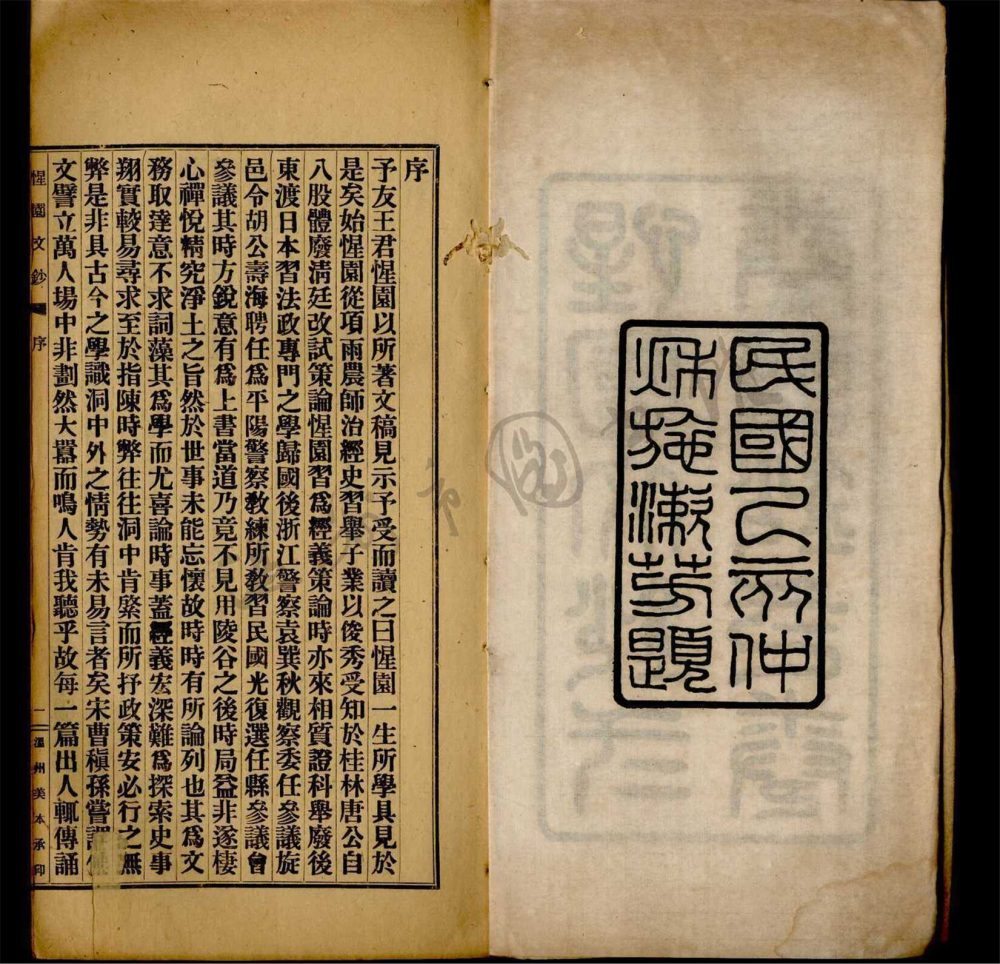 民國乙亥仲
秋施漱芳題
序
予友王君惺園以所著文稿見示予受而讀之曰惺園一生所學具見於
是矣始惺園從項雨農師治經史習舉子業以俊秀受知於桂林唐公自
八股體廢淸廷改試策論惺園習爲經義策論時亦來相質證科舉廢後
東渡日本習法政專門之學歸國後浙江警察袁巽秋觀察委任參議旋
邑令胡公壽海聘任爲平陽警察敎練所敎習民國光復選任縣參議會
參議其時方銳意有爲上書當道乃竟不見用陵谷之後時局益非遂棲
心禪悅精究淨土之旨然於世事未能忘懷故時時有所論列也其爲文
務取達意不求詞藻其爲學而尤喜論時事蓋經義宏深難爲探索史事
翔實較易尋求至於指陳時弊往往洞中肯綮而所抒政策安必行之無
弊是非具古今之學識洞中外之情勢有未易言者矣宋曹稹孫嘗謂
文譬立萬人場中非劃然大嚣而鳴人肯我聽乎故每一篇出人輒傳誦
惺園文鈔 序 一 溫州美本承印